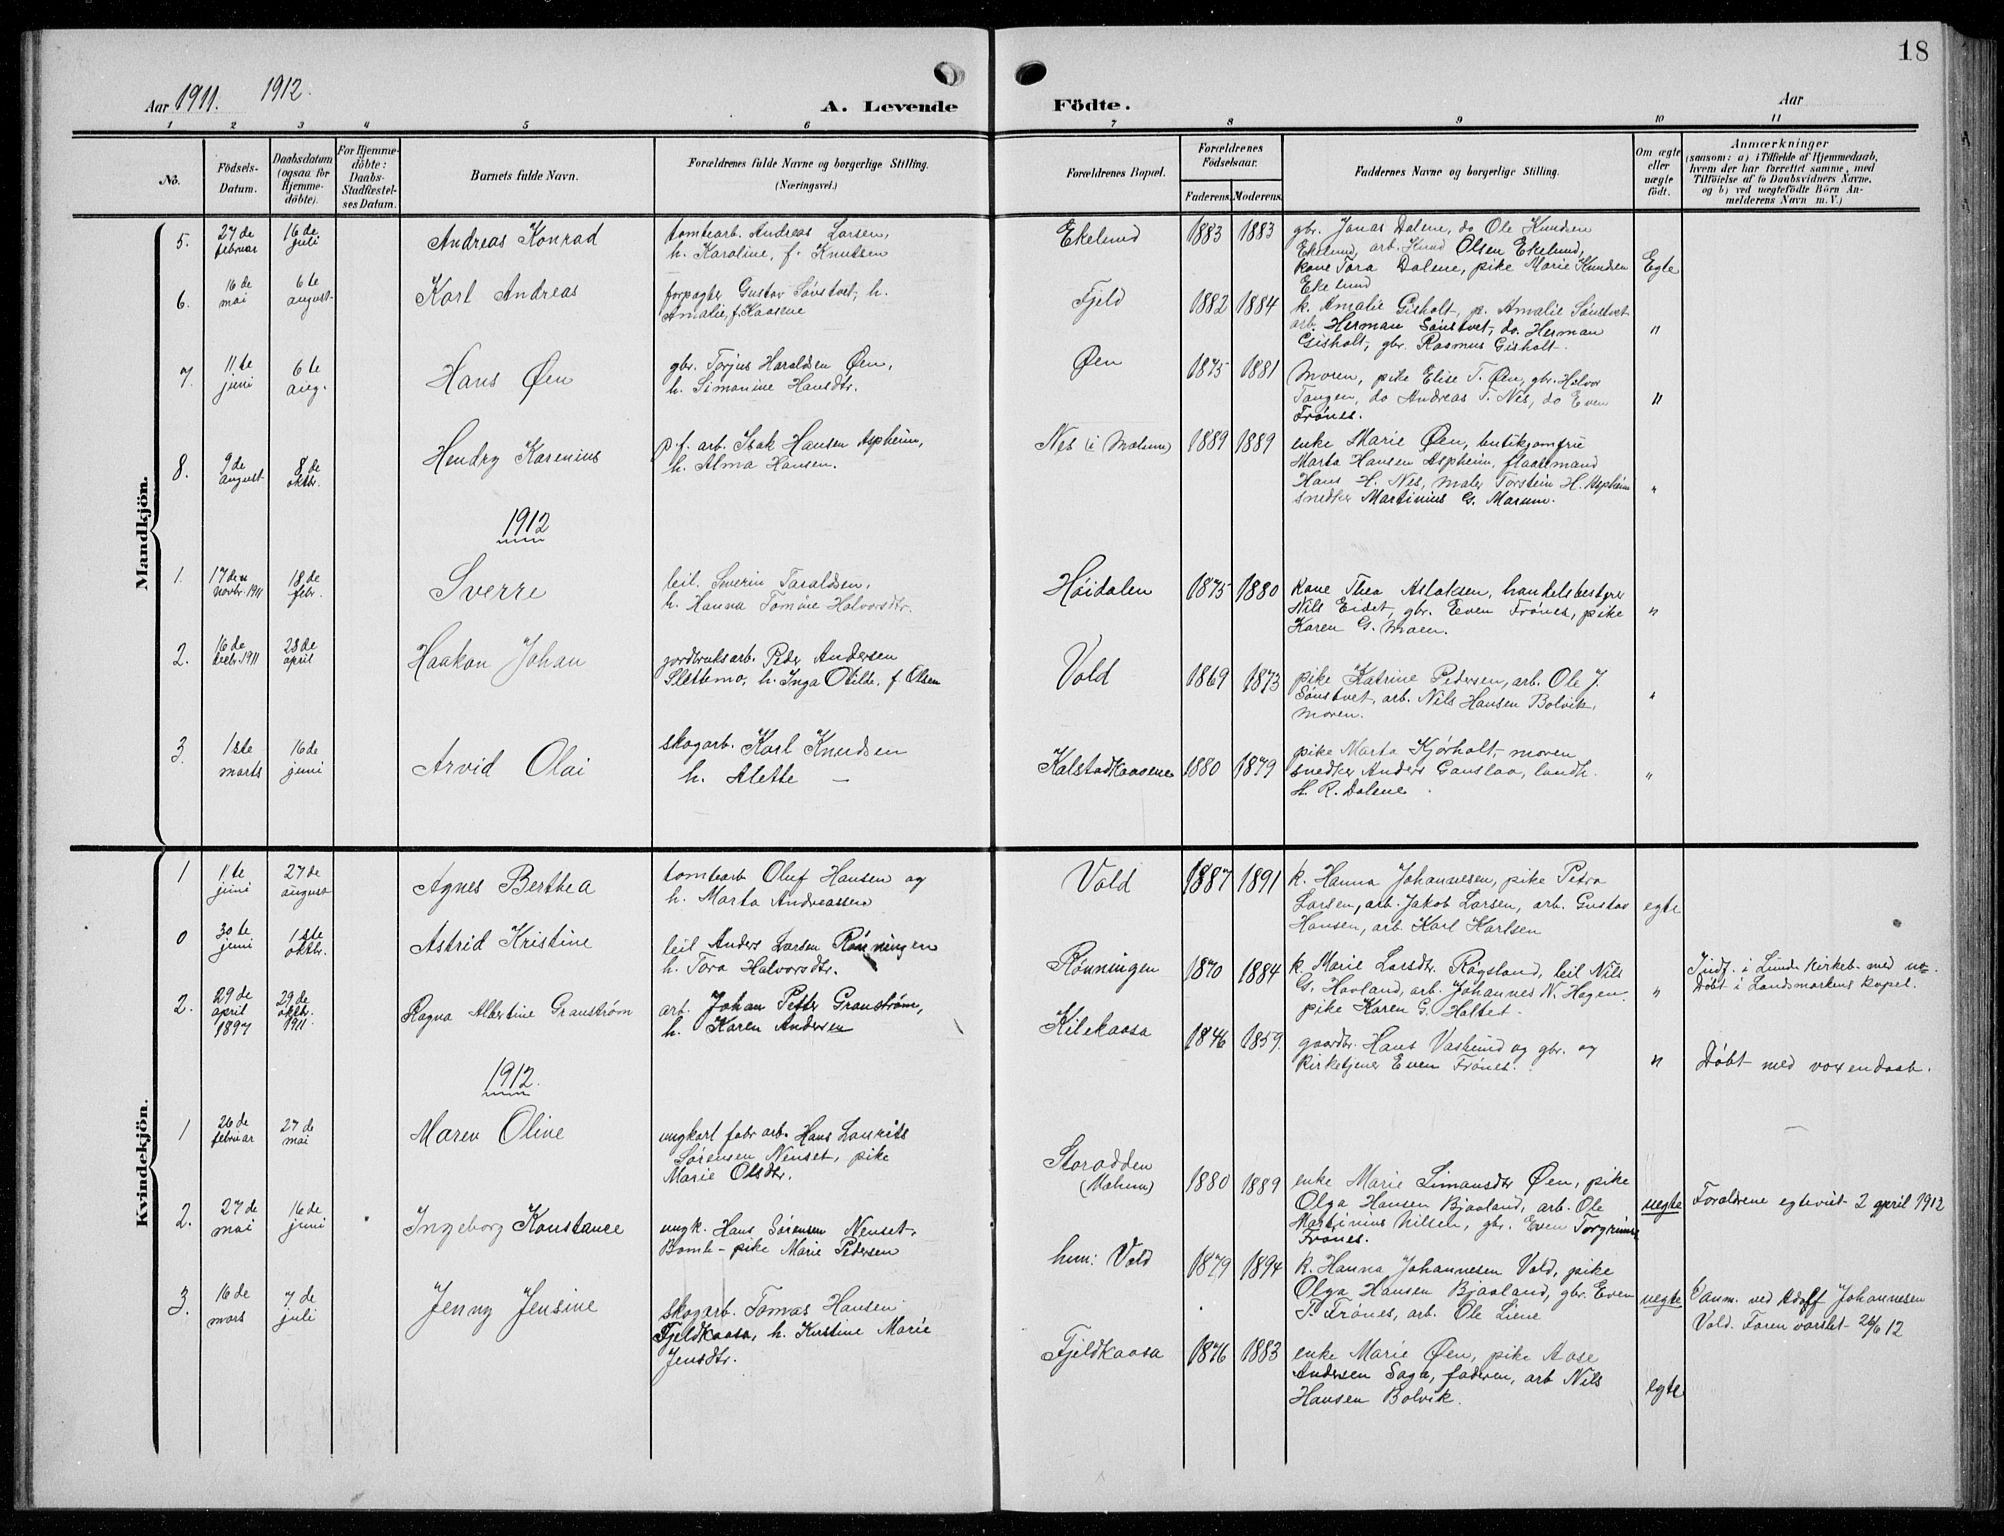 18
Aar 1911. 1912.
A. Levende Födte.
Aar
1 2 3 4 5 6 7 8 9 10 11
No.
Födsels-
Datum.
Daabsdatum
(ogsaa for
Hjemme-
döbte).
For Hjemme-
döbte:
Daabs-
Stadfæstel-
ses Datum.
Barnets fulde Navn.
Forældrenes fulde Navne og borgerlige Stilling.
(Næringsvei.)
Forældrenes Bopæl.
Forældrenes
Födselsaar.
Faderens. Moderens.
Faddernes Navne og borgerlige Stilling.
Om ægte
eller
uægte
født.
Anmærkninger
(saasom: a) i Tilfælde af Hjemmedaab,
hvem der har forrettet samme, med
Tilföielse af to Daabsvidners Navne,
og b) ved uægtefödte Börn An-
melderens Navn m. V.)
Mandkjön.
5. 27de februar 16de juli
Andreas Konrad
tomtearb. Andreas Larsen,
h. Karoline, f. Knutsen
Ekelund 1883 1883
gbr. Jonas Dalene, do Ole Knudsen
Ekelund, arb. Knud Olsen Ekelund,
kone Tora Dalene, pike Marie Knudsen
Ekelund
Egte
6. 16de mai 6te august
Karl Andreas
forpagter Gustav Sønstvet, h.
Amalie, f. Kaasene
Fjeld 1882 1884
k. Amalie Gisholt, p. Amalie Sønstvet
arb. Herman Sønstvet, do. Herman
Gisholt, gbr. Rasmus Gisholt.
"
7. 11te juni 6te aug.
Hans Øen
gbr. Torjus Haraldsen Øen,
h. Simonine Hansdtr.
Øen 1875 1881
Moren, pike Elise T. Øen, gbr. Halvor
Tangen, do Andreas T. Nes, do Even
Frønes.
"
8. 9de august 8de oktbr.
Hendry Karenius
p.f. arb. Isak Hansen Aspheim,
h. Alma Hansen.
Nes (i Mælum) 1889 1889
enke Marie Øen, butikjomfru
Marta Hansen Aspheim, flaatemand
Hans H. Nes, maler Torstein H. Aspheim
snedker Martinius G. Marum.
"
1912
1. 17de novbr. 1911 18de febr.
Sverre
leil. Severin Taraldsen,
h. Hanna Tomine Halvorsdtr.
Høidalen 1875 1880
kone Thea Aslaksen, handelsbestyrer
Nils Eidet, gbr. Even Frønes, pike
Karen G. Moen.
"
2. 16de decbr. 1911 28de april
Haakon Johan
jordbruksarb. Peder Andersen
Slettemo, h. Inga Otilde, f. Olsen
Vold 1869 1873
pike Katrine Pedersen, arb. Ole J.
Sønstvet, arb. Nils Hansen Bolvik,
moren.
"
3. 1ste marts 16de juni
Arvid Olai
skogarb. Karl Knudsen
h. Alette —
Kalstadkaasene 1880 1879
pike Marta Kjørholt, moren
snedker Anders Gonslaa, landh.
H. R. Dalene.
"
Kvindekjön.
1 11te juni 27de august
Agnes Berthea
tomtearb Oluf Hansen og
h. Marta Andreassen
Vold 1887 1891
k. Hanna Johannesen, pike Petra
Larsen, arb. Jakob Larsen, arb. Gustav
Hansen, arb. Karl Karlsen
egte
0 30te juni 1ste oktbr.
Astrid Kristine
leil Anders Larsen Rønningen
h. Tora Halvorsdtr.
Rønningen 1870 1884
k. Marie Larsdtr. Røgsland, leil Nils
G. Hovland, arb. Johannes N. Hagen,
pike Karen G. Haltet.
"
Indf. i Lunde Kirkeb. med nr.
Døbt i Landsmarkens kapel.
2. 29de april 1897 29de oktbr. 1911.
Ragna Albertine Granstrøm
arb. Johan Petter Granstrøm,
h. Karen Andersen
Kilekaasa 1846 1859
gaardbr. Hans Vaslund og gbr. og
kirketjener Even Frønes.
"
Døbt med voxendaab.
1912.
1 26de februar 27de mai
Maren Oline
ungkarl fabr arb. Hans Laurits
Sørensen Nenset, pike
Marie Olsdtr.
Storodden
(Mælum) 1880 1889
enke Marie Simonsdtr Øen, pike
Olga Hansen Bjaaland, arb. Ole
Martinius Nilsen, gbr. Even Torgrimsen
Frønes.
uegte
Foraldrene egteviet 2 april 1912
2. 27de mai 16de juni
Ingeborg Konstance
ungk. Hans Sørensen Nenset.
Bomb - pike Marie Pedersen
hun: Vold 1879 1894
k. Hanna Johannesen Vold, pike
Olga Hansen Bjaaland, gbr. Even
T. Frønes, arb. Ole Liene
uegte
Vanm. ved Adolf Johannesen
Vold. Faren varslet 26/6 12
3. 16de mars 7de juli
Jenny Jensine
skogarb. Tomas Hansen
Fjeldkaasa, h. Kirstine Marie
Jensdtr.
Fjeldkaasa 1876 1883
enke Marie Øen, pike Aase
Andersen Saga, faderen, arb Nils
Hansen Bolvik.
egte